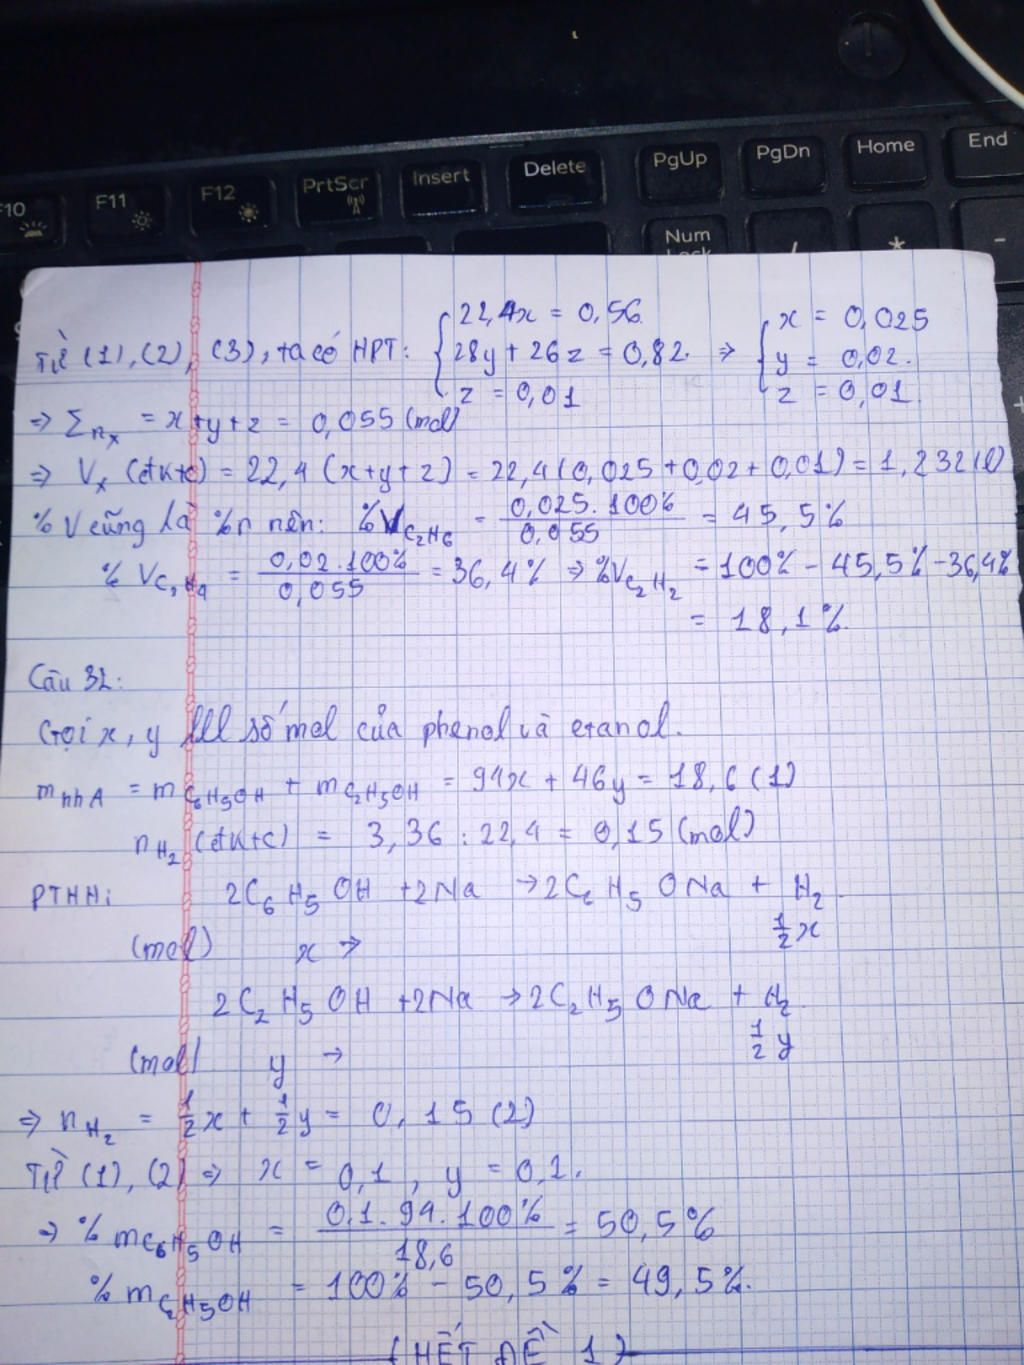 F10 F11 F12 PrtScr Insert Delete PgUp PgDn Home End
Num Lock / * -
+
Từ (1), (2), (3), ta có HPT: { 22,4x = 0,56 ; 28y + 26z = 0,82 ; z = 0,01 ⇒ { x = 0,025 ; y = 0,02. ; z = 0,01
⇒ Σnₓ = x+y+z = 0,055 (mol)
⇒ Vₓ (đktc) = 22,4 (x+y+z) = 22,4(0,025 + 0,02 + 0,01) = 1,232(l)
% V cũng là %n nên: %V C₂H₆ = 0,025.100% / 0,055 = 45,5%
% V C₂H₄ = 0,02.100% / 0,055 = 36,4% ⇒ %V C₂H₂ = 100% - 45,5% - 36,4%
= 18,1%.
Câu 32:
Gọi x, y lll số mol của phenol và etanol.
m hh A = m C₆H₅OH + m C₂H₅OH = 94x + 46y = 18,6 (1)
n H₂ (đktc) = 3,36 : 22,4 = 0,15 (mol)
PTHH: 2C₆H₅OH + 2Na → 2C₆H₅ONa + H₂
(mol) x → ½x
2C₂H₅OH + 2Na → 2C₂H₅ONa + H₂
(mol) y → ½y
⇒ n H₂ = ½x + ½y = 0,15 (2)
Từ (1), (2) ⇒ x = 0,1, y = 0,2.
⇒ % m C₆H₅OH = 0,1.94.100% / 18,6 = 50,5%
% m C₂H₅OH = 100% - 50,5% = 49,5%.
(HẾT ĐỀ 1)